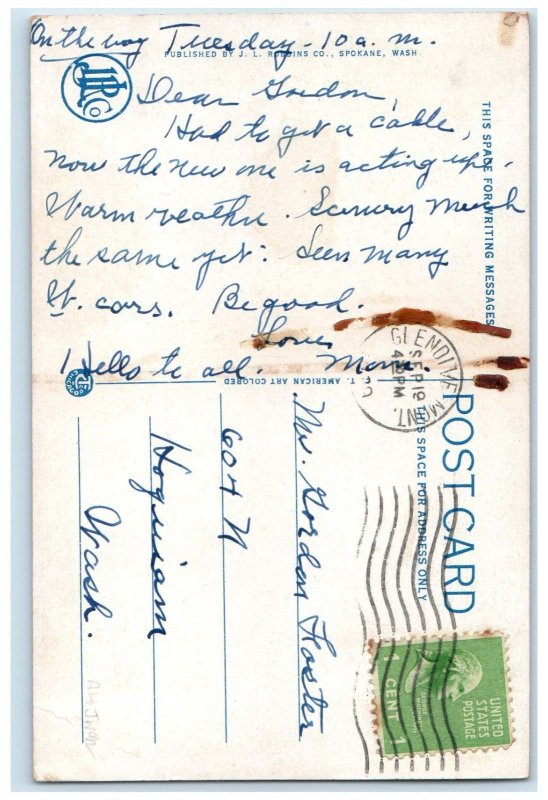 On the way Tuesday - 10 a. m.
PUBLISHED BY J. L. ROBBINS CO., SPOKANE, WASH
JLR Co
Dear Gordon,
Had to get a cable,
now the new one is acting up.
Warm weather. Scenery much
the same yet. Seen many
W. cars. Be good.
Love
Hello to all. Mom.
THIS SPACE FOR WRITING MESSAGES
C. T. AMERICAN ART COLORED
POST CARD
THIS SPACE FOR ADDRESS ONLY
GLENDIVE MONT.
SEP 19
4 PM
Mr. Gordon Foster
604 N
Hoquiam
Wash.
UNITED
STATES
POSTAGE
GEORGE WASHINGTON
1 CENT 1